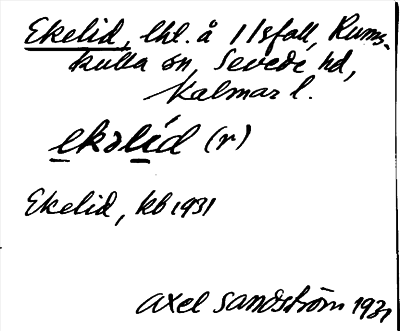 Ekelid, lhl. å Ilsfall, Rums-
kulla sn, Sevede hd,
Kalmar l.
ekəlíd (r)
Ekelid, kb 1931
Axel Sandström 1931